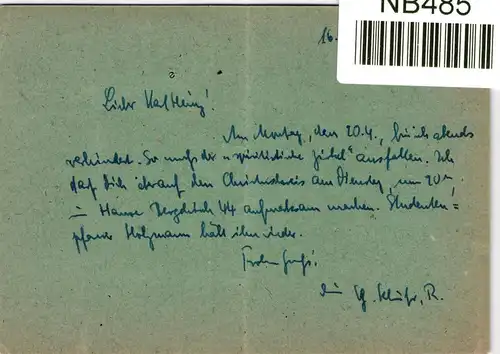 NB485
16.
Lieber Karl Heinz!
Am Montag, den 20.4., bin ich abends
verhindert. So muß der „spiritistische Zirkel“ ausfallen. Ich
darf Dich darauf den Christuskreis am Dienstag, um 20
im Hause Bergstraße 44 aufmerksam machen. Studenten=
pfarrer Holzmann hält ihn wieder.
Frohen Gruß!
Dein